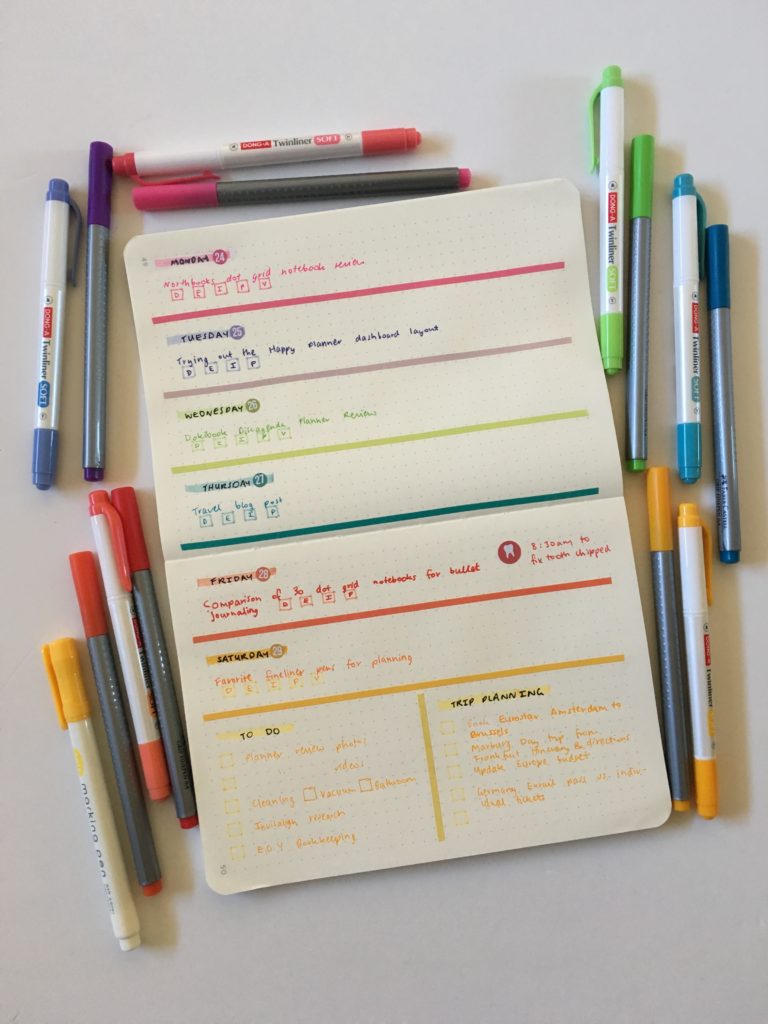 DONG-A Twinliner SOFT
DONG-A Twinliner SOFT
DONG-A Twinliner SOFT
DONG-A Twinliner SOFT
49
MONDAY 24
Northbooks dot grid notebook review
D E I P V
TUESDAY 25
Trying out the Happy Planner dashboard layout
D E I P
WEDNESDAY 26
Planner Review
D E I P V
THURSDAY 27
Travel blog post
D E I P
FRIDAY 28
Comparison of 30 dot grid notebooks for bullet
journaling D E I P
8:30am to
fix tooth chipped
SATURDAY 29
Favorite fineliner pens for planning
D E I P V
TO DO
Planner review photos
" " videos
Cleaning Vacuum Bathroom
research
E.O.Y Bookkeeping
TRIP PLANNING
Book Eurostar Amsterdam to
Brussels
Marburg Day trip from
Frankfurt itinerary & directions
Update Europe budget
Germany Eurail pass vs. indiv-
idual tickets
50
Twinliner
DONG-A Twinliner
marking pen